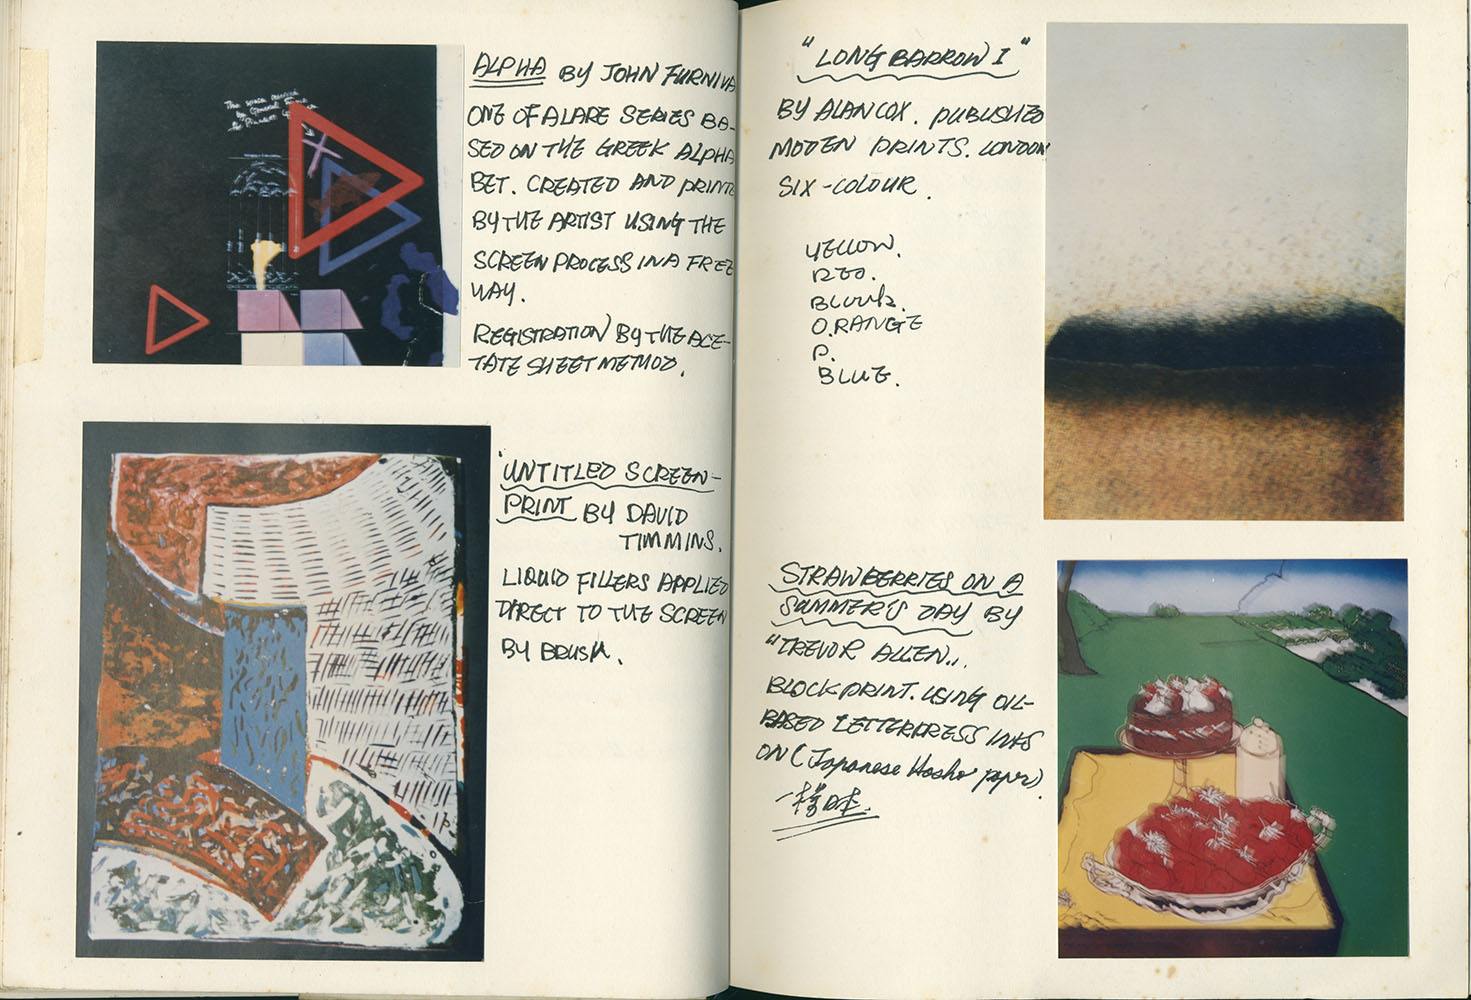 ALPHA BY JOHN FURNIVA
ONE OF A LARE SERIES BA-
SED ON THE GREEK ALPHA
BET. CREATED AND PRINTE
BY THE ARTIST USING THE
SCREEN PROCESS IN A FREE
WAY.
REGISTRATION BY THE ACE-
TATE SHEET METHOD.
UNTITLED SCREEN-
PRINT BY DAVID
TIMMINS.
LIQUID FILLERS APPLIED
DIRECT TO THE SCREEN
BY BRUSH.
"LONG BARROW I"
BY ALAN COX. PUBLISHED
MODEN PRINTS. LONDON
SIX-COLOUR.
YELLOW.
RED.
O.RANGE
P.
BLUE.
STRAWBERRIES ON A
SUMMER'S DAY BY
"TREVOR ALLEN".
BLOCKPRINT. USING OIL-
BASED LETTERPRESS INKS
ON (Japanese Hosho paper)